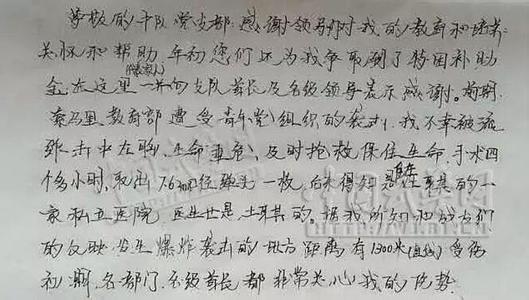 尊敬的斗队党支部：感谢领导对我的教育和培养
关怀和帮助 年初您们还为我争取到了特困补助
金，在这里一并向支队首长及各级领导表示感谢。前期
索马里教育部遭受青年党组织的袭击，我不幸被流
弹击中左胸，生命垂危，及时抢救，保住生命，手术四
个多小时，取出7.62口径弹头一枚，后来得知是土耳其的一
家私立医院 医生也是土耳其的。据我所知和战友们
的反映 发生爆炸袭击的地方距离有1300米(直线) 受伤
初期，各部门 各级首长都非常关心我的伤势